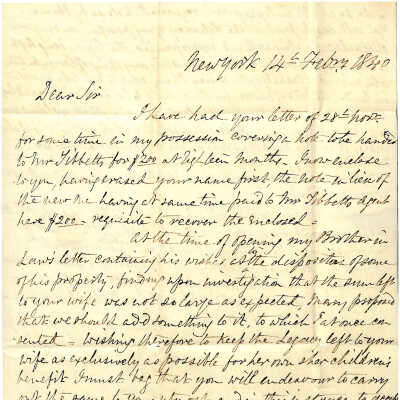 New York 14th Febry 1840
Dear Sir
I have had your letter of 28th Novr
for some time in my possession covering a note to be handed
to Mr Tibbetts for $200 at Eighteen Months. I now enclose
to you, having erased your name first, the note in lieu of
the new one having at same time paid to Mr Tibbetts agent
here $200 - requisite to recover the enclosed -
At the time of opening my Brother in
Laws letter containing his wishes at the disposition of some
of his property, finding upon investigation that the sum left
to your wife was not so large as expected, Mary proposed
that we should add something to it, to which I at once con
sented - Wishing therefore to keep the Legacy left to your
wife as exclusively as possible for her own & her children's
benefit I must beg that you will endeavour to carry
out the same to your utmost and